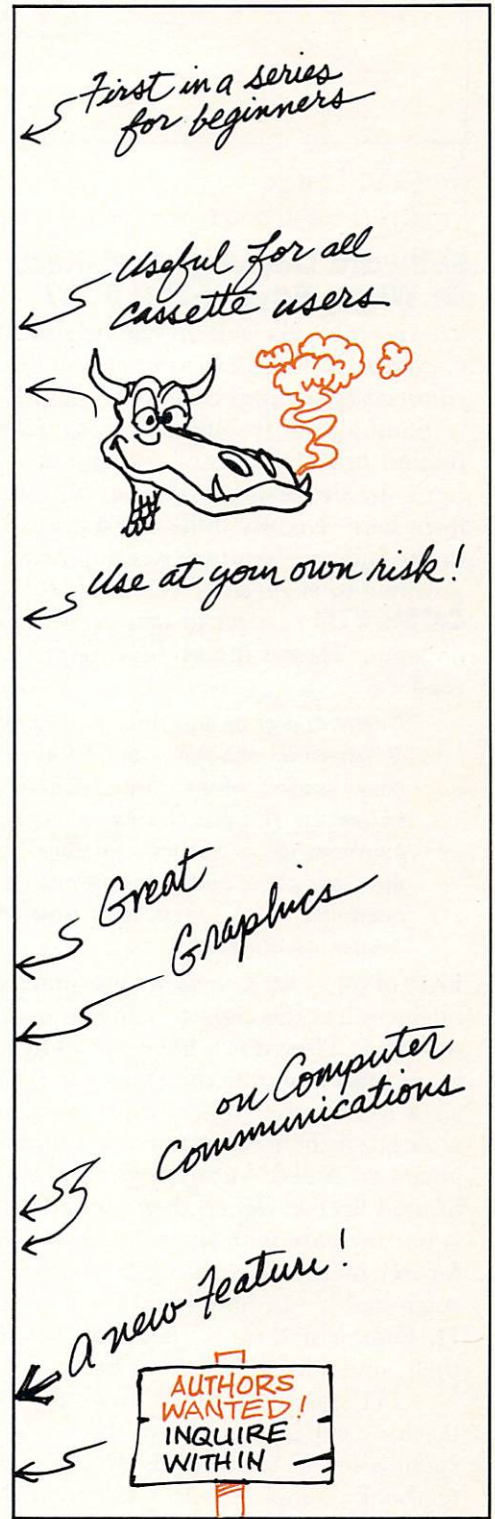 First in a series
for beginners
Useful for all
cassette users
Use at your own risk!
Great
Graphics
on Computer
Communications
A new Feature!
AUTHORS
WANTED!
INQUIRE
WITHIN